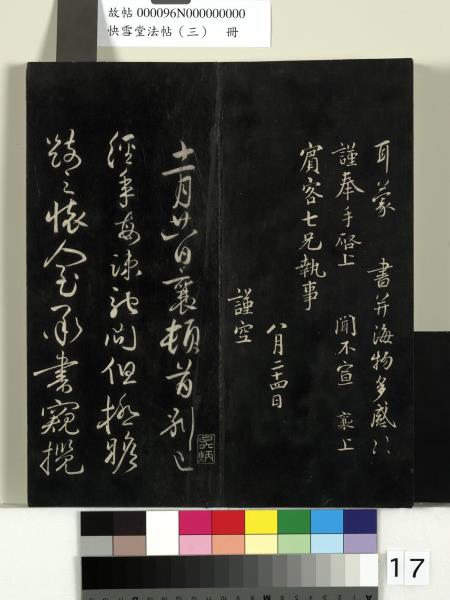 故帖 000096N000000000
快雪堂法帖（三） 冊
耳蒙 書并海物多感々
謹奉手啓上 聞不宣 襄上
賓客七兄執事
謹空
八月二十四日
十一月廿日襄頓首別已
經年安疎馳問但極瞻
企懷
承書窺攬
吳炳
17